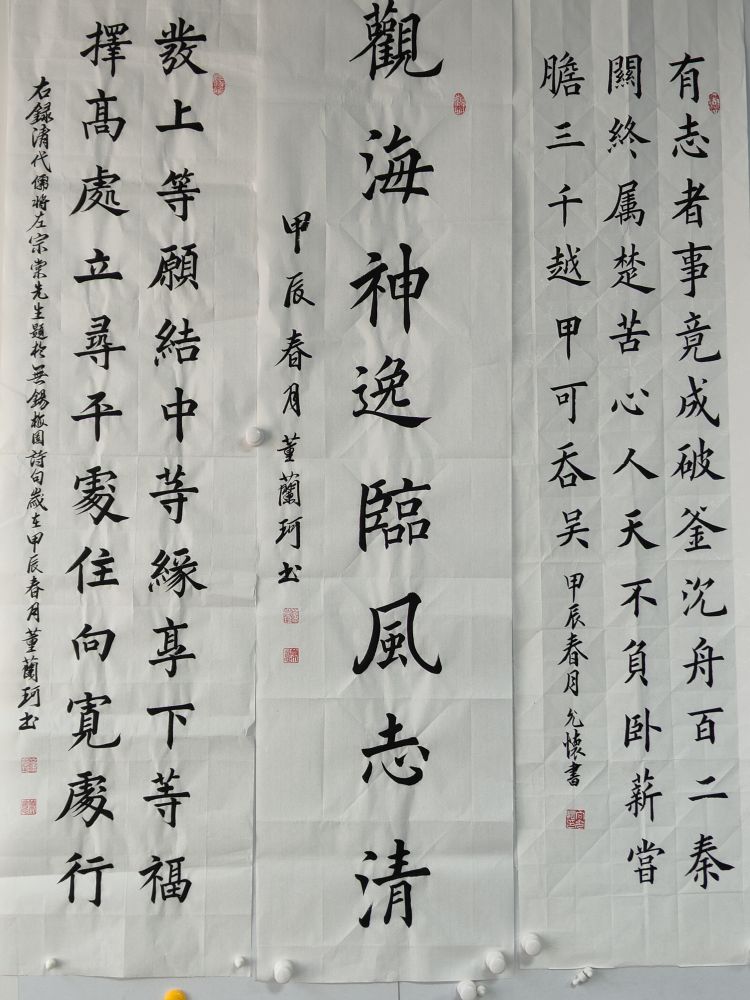 有志者事竟成破釜沉舟百二秦
關終属楚苦心人天不負卧薪嘗
膽三千越甲可吞吴
甲辰春月允懷書
觀海神逸臨風志清
甲辰春月董蘭珂书
發上等願結中等緣享下等福
擇髙處立尋平處住向寬處行
右録清代儒將左宗棠先生題於無錫梅園詩句歲在甲辰春月董蘭珂书